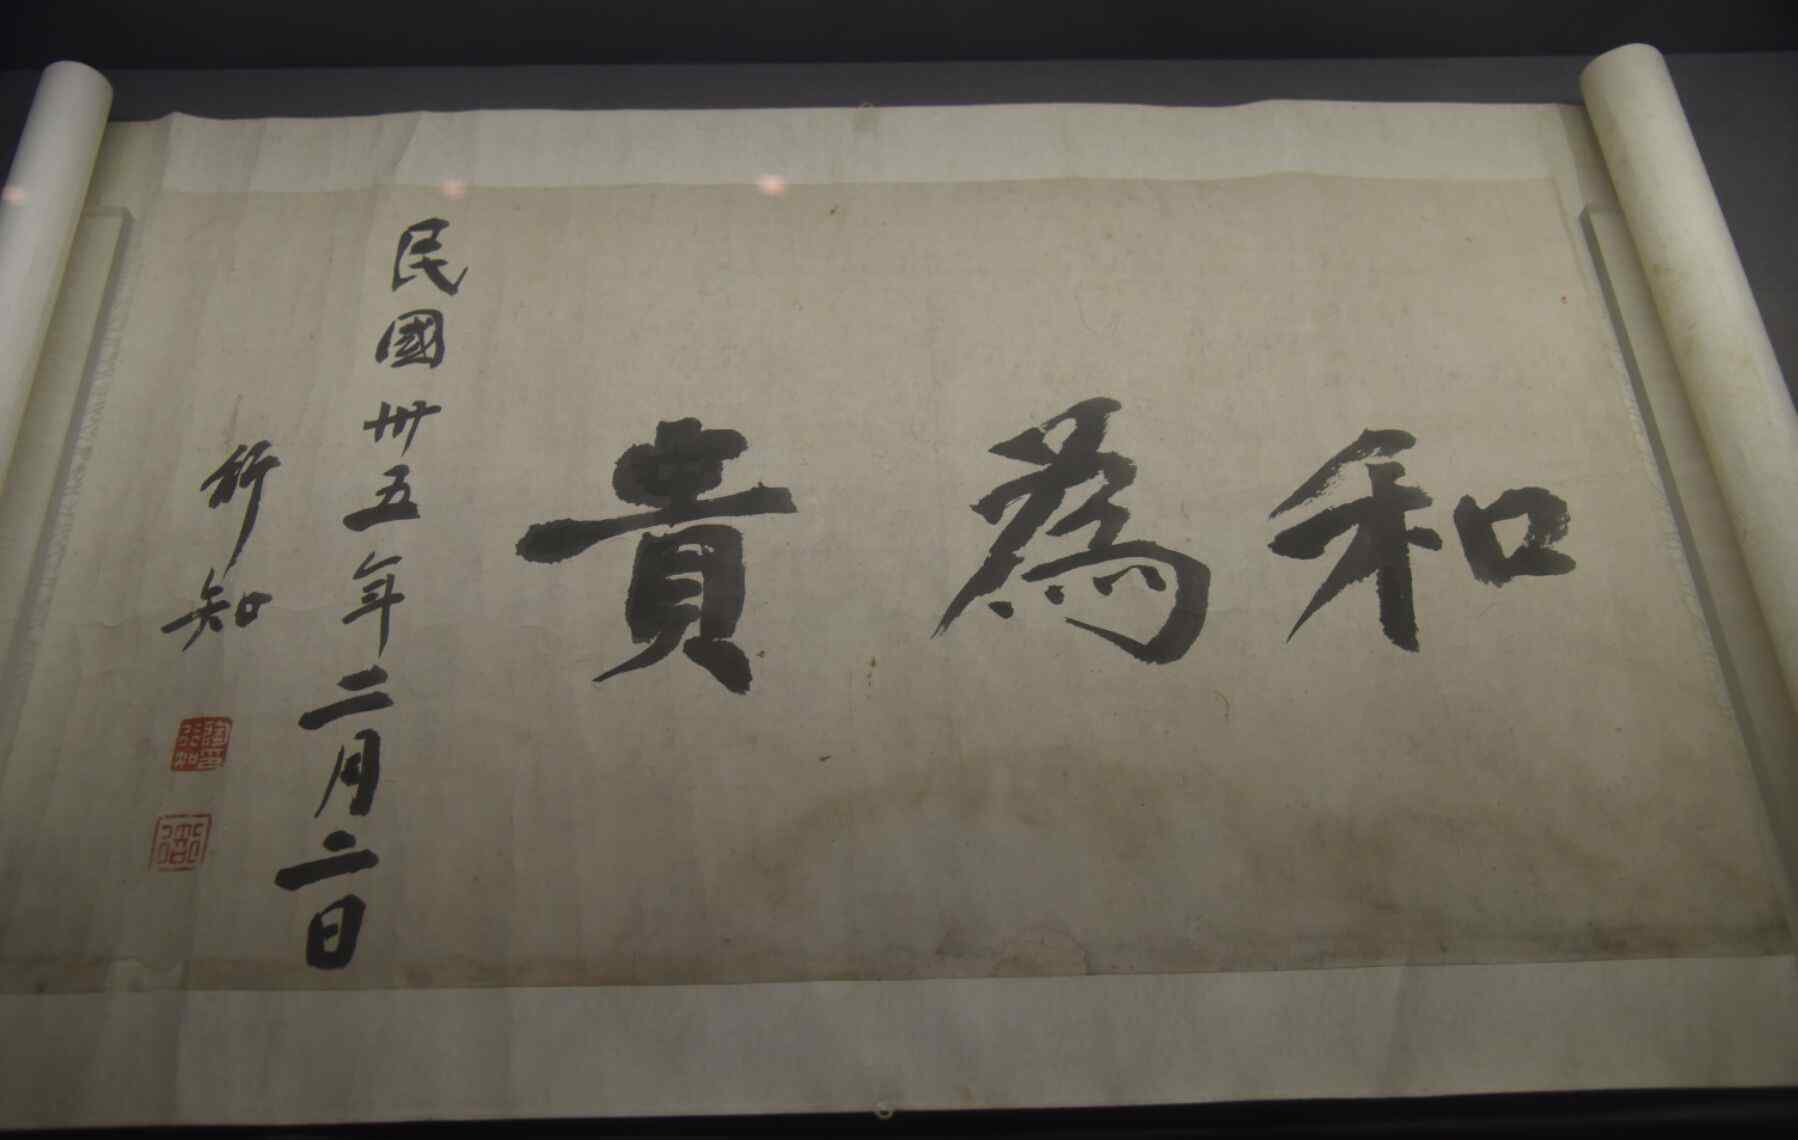 和為貴
民國卅五年二月二日
行知